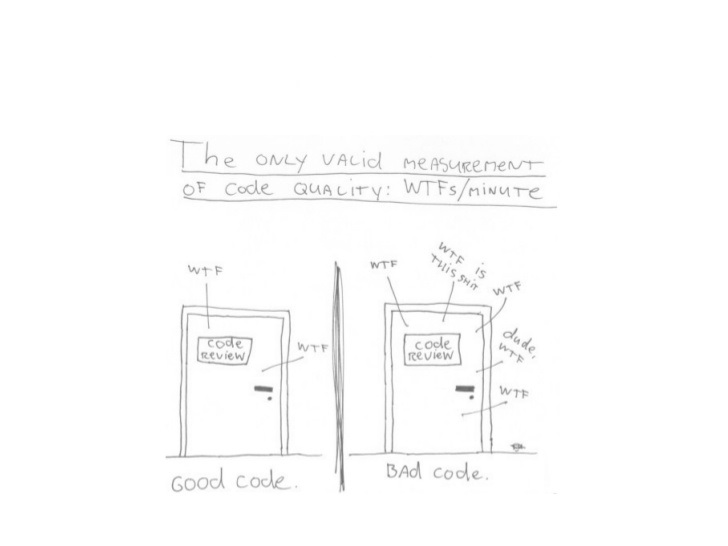 The ONLY VALid MEASUREMENT
OF Code QUALITY: WTFs/MINUTE
WTF
Code
REVIEW
WTF
GOOD CODE.
WTF
WTF is
THIS SHIT
WTF
dude,
WTF
Code
REVIEW
WTF
BAd code.